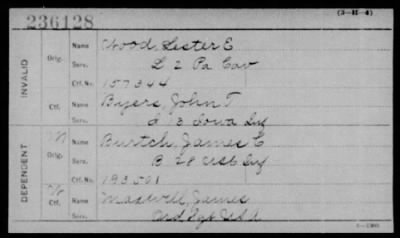 (3-H-4)
236128
INVALID
Orig.
Name Wood, Lester E
Serv. L 2 Pa Cav
Ctf. No. 157344
Ctf.
Name Byers, John T
Serv. I 13 Iowa Inf
DEPENDENT
Orig.
Name Burtch, James C
Serv. B 28 USC Inf
Ctf. No. 193501
Ctf.
Name Maxwell, James
Serv. Ord Sgt USA